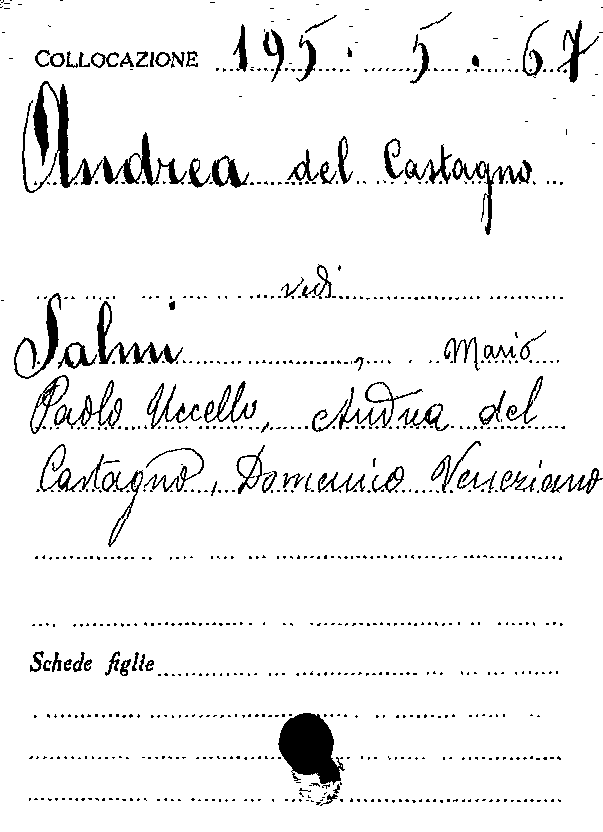 COLLOCAZIONE 195. 5. 67
Andrea del Castagno
vedi
Salmi, Mario
Paolo Uccello, Andrea del
Castagno, Domenico Veneziano
Schede figlie